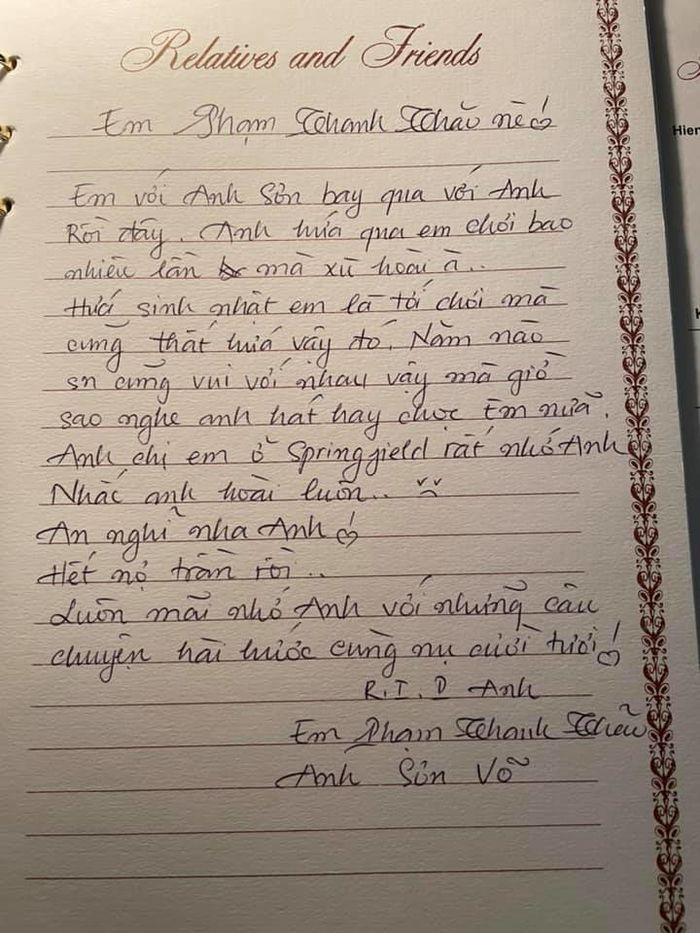 Relatives and Friends
Em Phạm Thanh Thảo nè
Em với Anh Sơn bay qua với Anh
Rồi đây. Anh hứa qua em chơi bao
nhiêu lần mà xù hoài à..
Hứa sinh nhật em là tới chơi mà
cũng thất hứa vậy đó. Năm nào
sn cũng vui với nhau vậy mà giờ
sao nghe anh hát hay chọc Em nữa.
Anh chị em ở Springfield rất nhớ Anh
Nhắc anh hoài luôn..
An nghĩ nha Anh
Hết nợ trần rồi..
Luôn mãi nhớ Anh với những câu
chuyện hài hước cùng nụ cười tươi!
R.I.P Anh
Em Phạm Thanh Thảo
Anh Sơn Võ
Hien